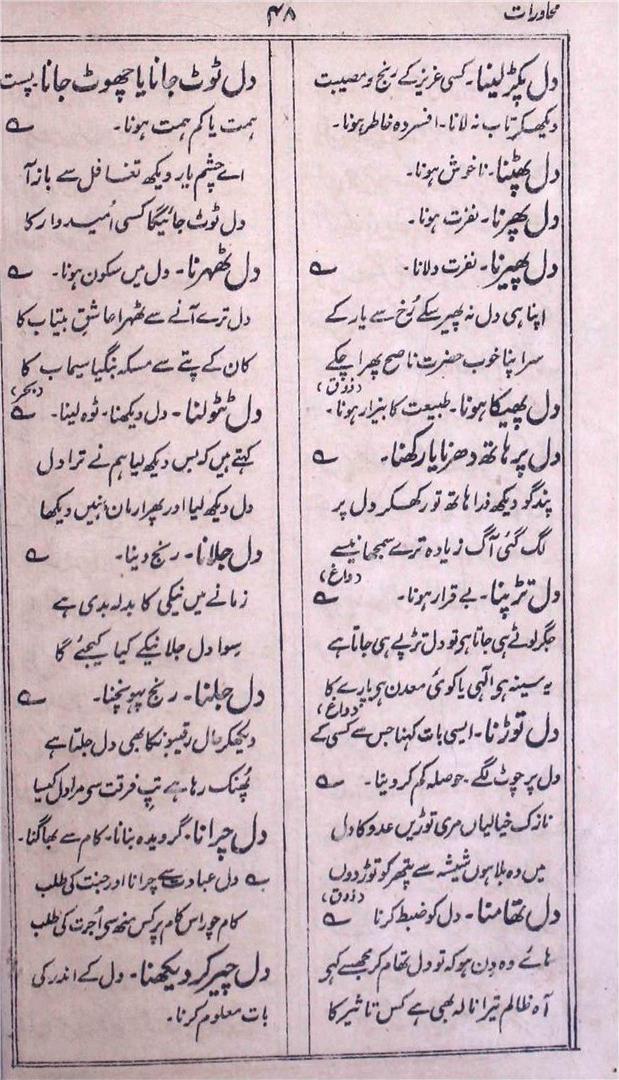 محاورات
۴۸
دل پکڑ لینا۔ کسی عزیز کے رنج و مصیبت
دیکھکر تاب نہ لانا۔ افسردہ خاطر ہونا۔
دل پھٹنا۔ ناخوش ہونا۔
دل پھرنا۔ نفرت ہونا۔
دل پھیرنا۔ نفرت دلانا۔ ؎
اپنا ہی دل نہ پھیر سکے رُخ سے یار کے
سر اپنا خوب حضرت ناصح پھرا چکے
(ذوق)
دل پھیکا ہونا۔ طبیعت کا بیزار ہونا۔
دل پر ہاتھ دھرنا یا رکھنا۔ ؎
پندگو دیکھ ذرا ہاتھ تو رکھکر دل پر
لگ گئی آگ زیادہ ترے سمجھانیسے
(داغ)
دل تڑپنا۔ بے قرار ہونا۔ ؎
جگر لوٹے ہی جاتا ہی تو دل تڑپے ہی جاتا ہے
یہ سینہ ہی الٰہی یا کوئی معدن ہی پارے کا
(داغ)
دل توڑنا۔ ایسی بات کہنا جس سے کسی کے
دل پر چوٹ لگے۔ حوصلہ کم کر دینا۔ ؎
نازک خیالیاں مری توڑیں عدو کا دل
میں وہ بلا ہوں شیشہ سے پتھر کو توڑ دوں
(ذوق)
دل تھامنا۔ دل کو ضبط کرنا ؎
ہائے وہ دن ہو کہ تو دل تھام کر مجھسے کہی
آہ ظالم تیرا نالہ بھی ہے کس تاثیر کا
دل ٹوٹ جانا یا چھوٹ جانا۔ پست
ہمت یا کم ہمت ہونا۔ ؎
اے چشم یار دیکھ تغافل سے باز آ
دل ٹوٹ جائیگا کسی اُمیدوار کا
دل ٹھہرنا۔ دل میں سکون ہونا۔ ؎
دل ترے آنے سے ٹھہرا عاشق بیتاب کا
کان کے پتے سے مسکہ بنگیا سیماب کا
(بحر)
دل ٹٹولنا۔ دل دیکھنا۔ ٹوہ لینا۔ ؎
کہتے ہیں کہ بس دیکھ لیا ہم نے ترا دل
دل دیکھ لیا اور پھر ارمان نہیں دیکھا
دل جلانا۔ رنج دینا۔ ؎
زمانے میں نیکی کا بدلہ بدی ہے
رسوا دل جلانیکے کیا کیجئے گا
دل جلنا۔ رنج پہونچنا۔ ؎
دیکھکر حال رقیبونکا بھی دل جلتا ہے
پُھنک رہا ہے تپ فرقت سی مرا دل کیسا
دل چرانا۔ گرویدہ بنانا۔ کام سے بھاگنا۔
؎ دل عبادت سے چرانا اور جنت کی طلب
کام چور اس کام پر کس منھ سی اُجرت کی طلب
دل چیر کر دیکھنا۔ دل کے اندر کی
بات معلوم کرنا۔